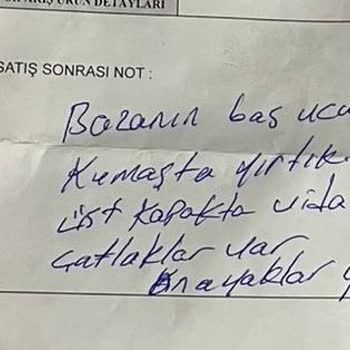 SİPARİŞ ÜRÜN DETAYLARI
SATIŞ SONRASI NOT :
Bazanın baş ucu
Kumaşta yırtık
üst kapakta vida
çatlaklar var
Ön ayaklar